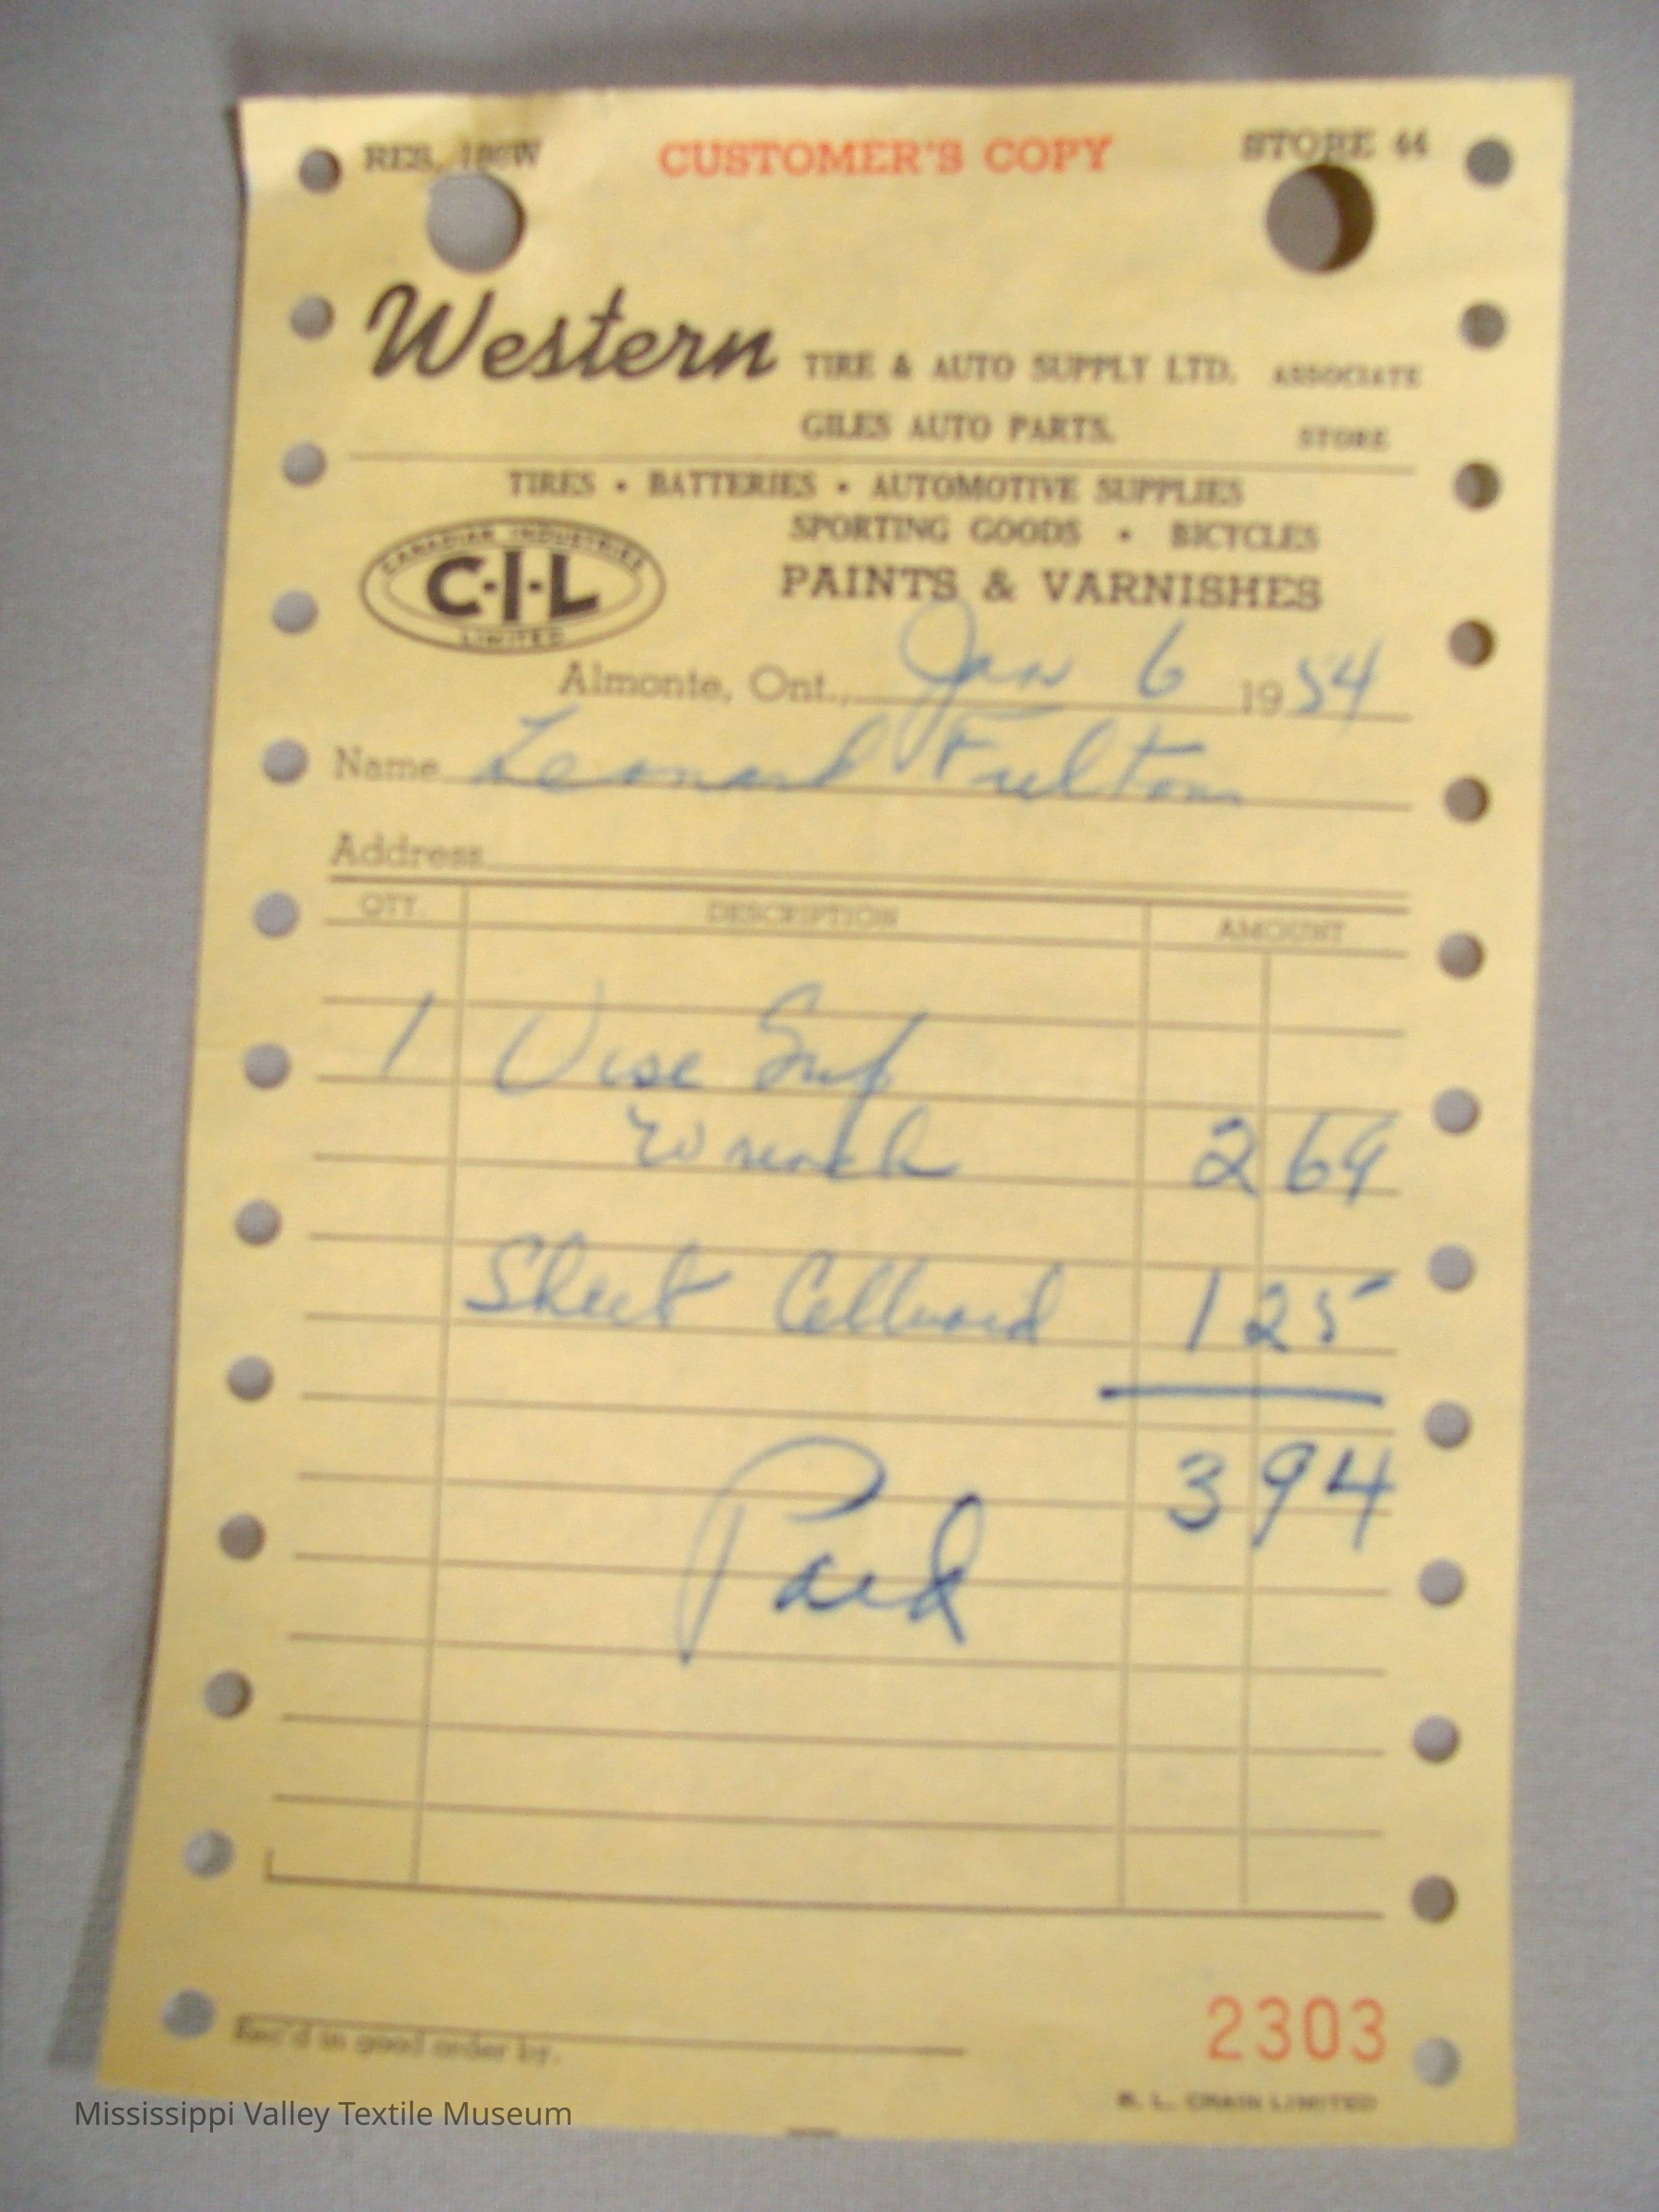 RES. W CUSTOMER'S COPY STORE 44
Western TIRE & AUTO SUPPLY LTD. ASSOCIATE
GILES AUTO PARTS. STORE
TIRES • BATTERIES • AUTOMOTIVE SUPPLIES
SPORTING GOODS • BICYCLES
CANADIAN INDUSTRIES
C-I-L
LIMITED
PAINTS & VARNISHES
Almonte, Ont., Jan 6 1954
Name Leonard Fulton
Address
QTY. DESCRIPTION AMOUNT
1 Vise Grip
Wrench 2 69
Sheet Celluoid 1 25
3 94
Paid
2303
Rec'd in good order by.
R. L. CRAIN LIMITED
Mississippi Valley Textile Museum